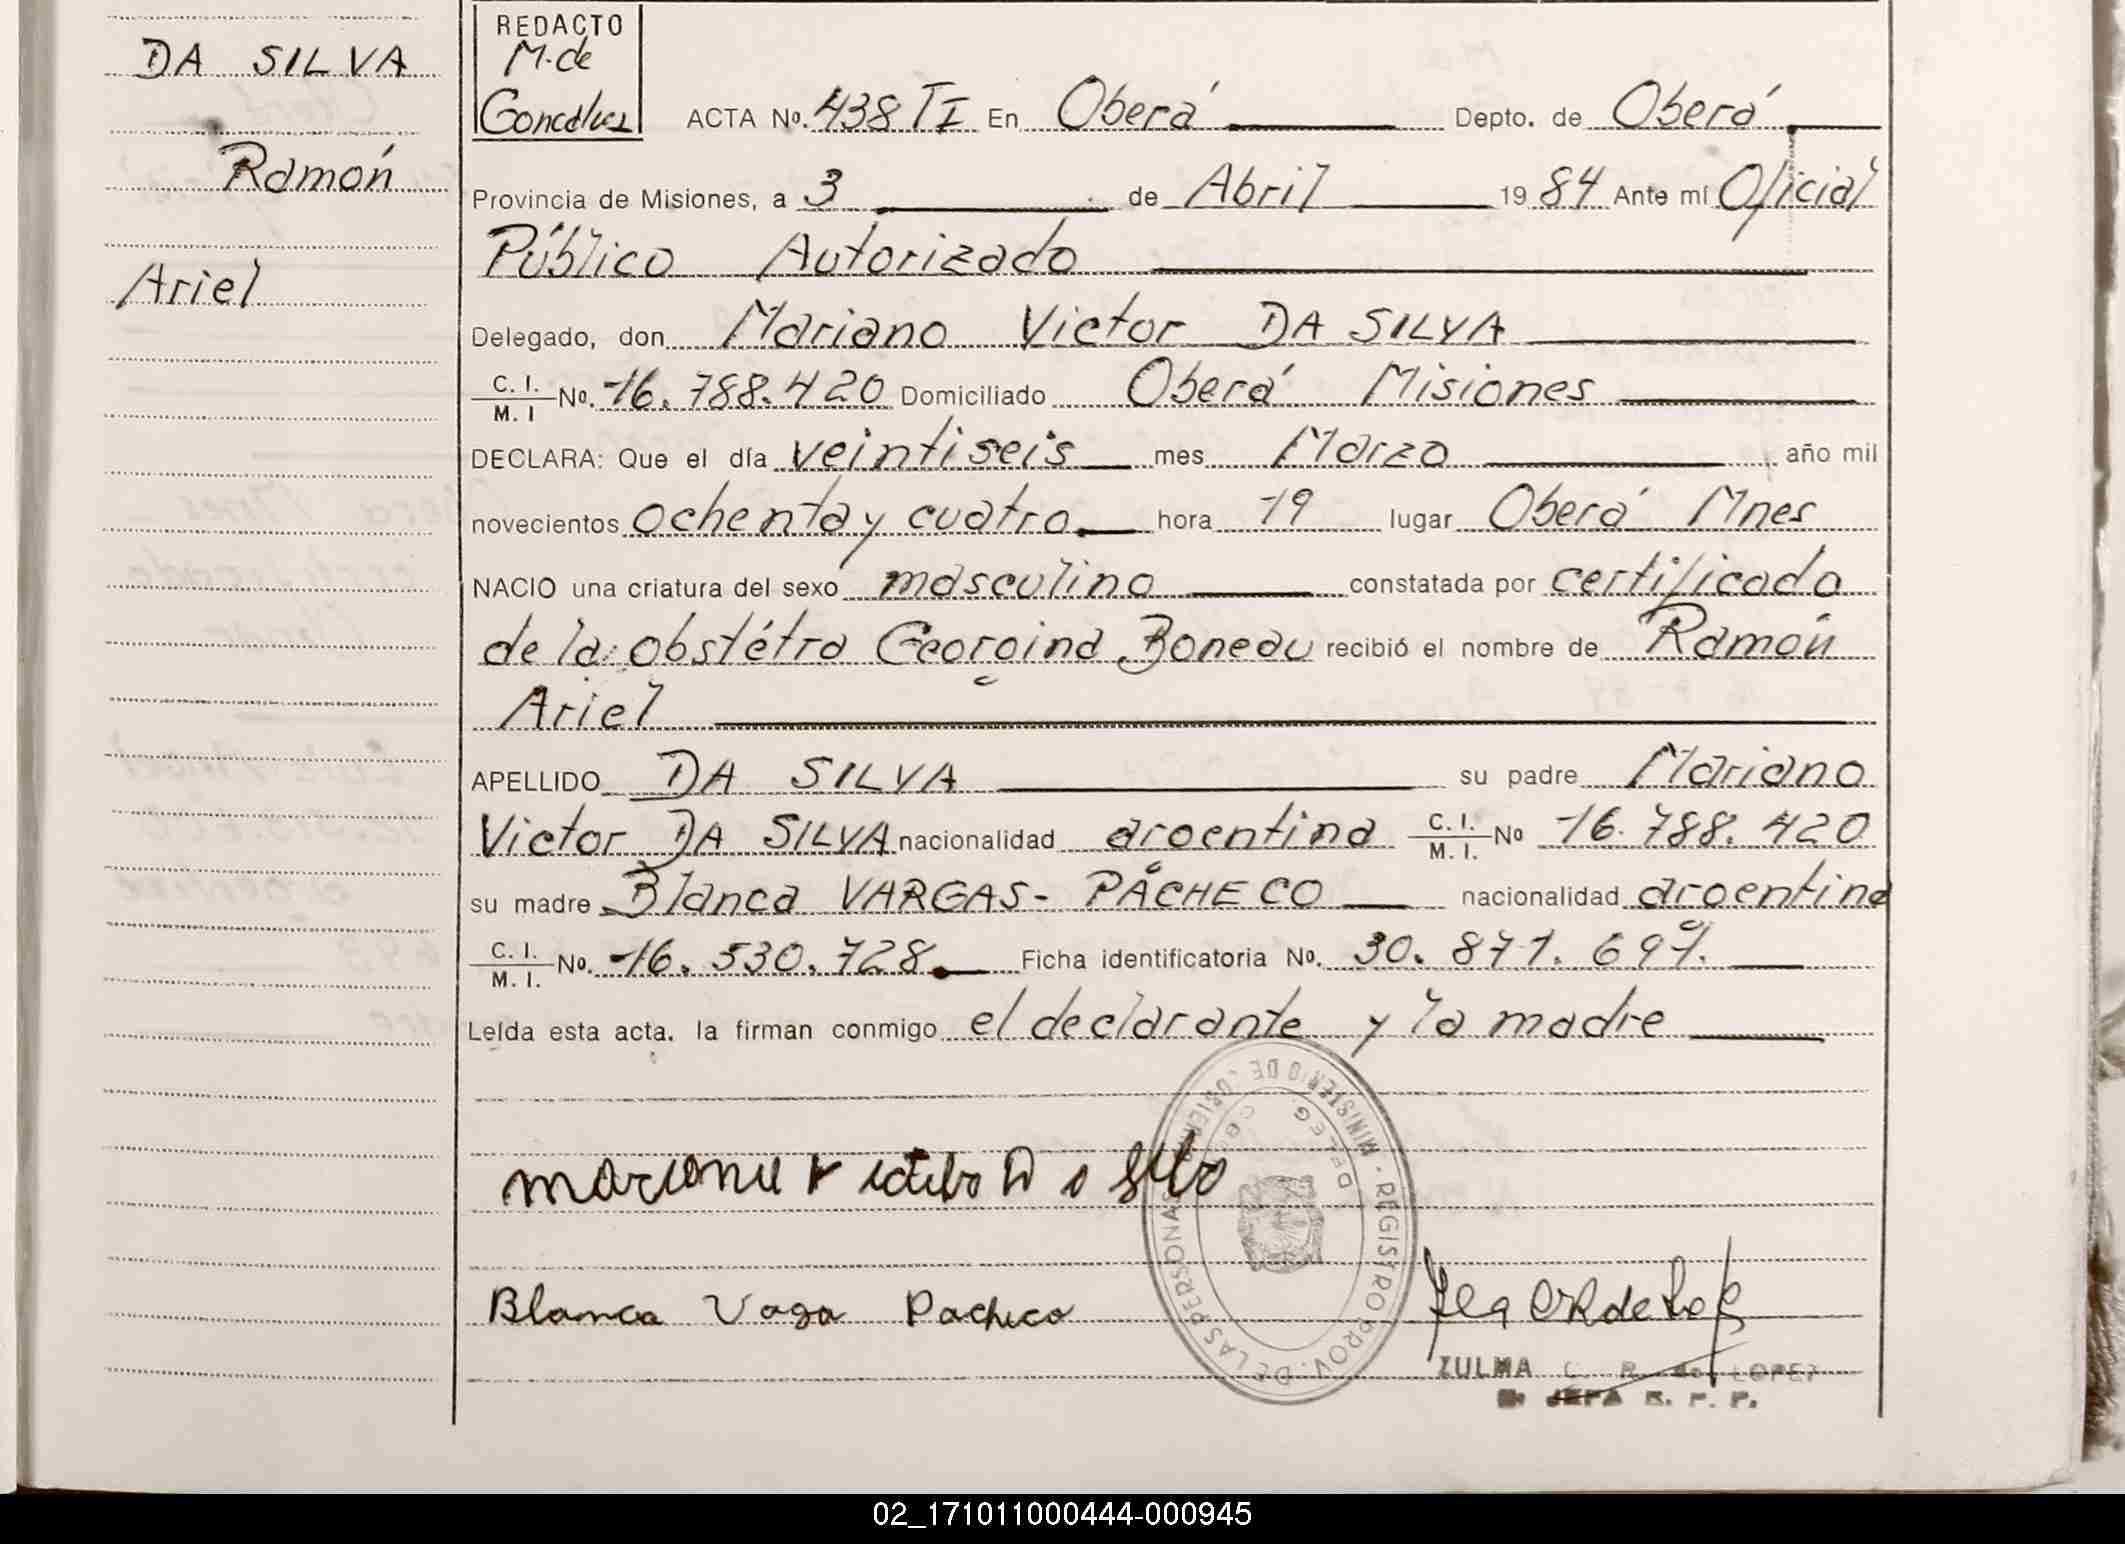 DA SILVA
Ramón
Ariel
REDACTO
M. de
Goncalves
ACTA Nº. 438 TI En Oberá Depto. de Oberá
Provincia de Misiones, a 3 de Abril 1984 Ante mí Oficial
Público Autorizado
Delegado, don Mariano Victor DA SILVA
C. I. M. I Nº. 16.788.420 Domiciliado Oberá Misiones
DECLARA: Que el día veintiseis mes Marzo año mil
novecientos ochenta y cuatro hora 19 lugar Oberá Mnes
NACIO una criatura del sexo masculino constatada por certificado
de la obstétra Georgina Boneau recibió el nombre de Ramón
Ariel
APELLIDO DA SILVA su padre Mariano
Victor DA SILVA nacionalidad argentina C. I. M. I. Nº 16.788.420
su madre Blanca VARGAS - PACHECO nacionalidad argentina
C. I. M. I. Nº. 16.530.728. Ficha identificatoria Nº. 30.871.697.
Leída esta acta. la firman conmigo el declarante y la madre
MINISTERIO DE GOBIERNO · REGISTRO PROV. DE LAS PERSONAS
DELEG.
Blanca Vaga Pacheco
ZULMA C. R. de LOPEZ
JEFA R. P. P.
02_171011000444-000945